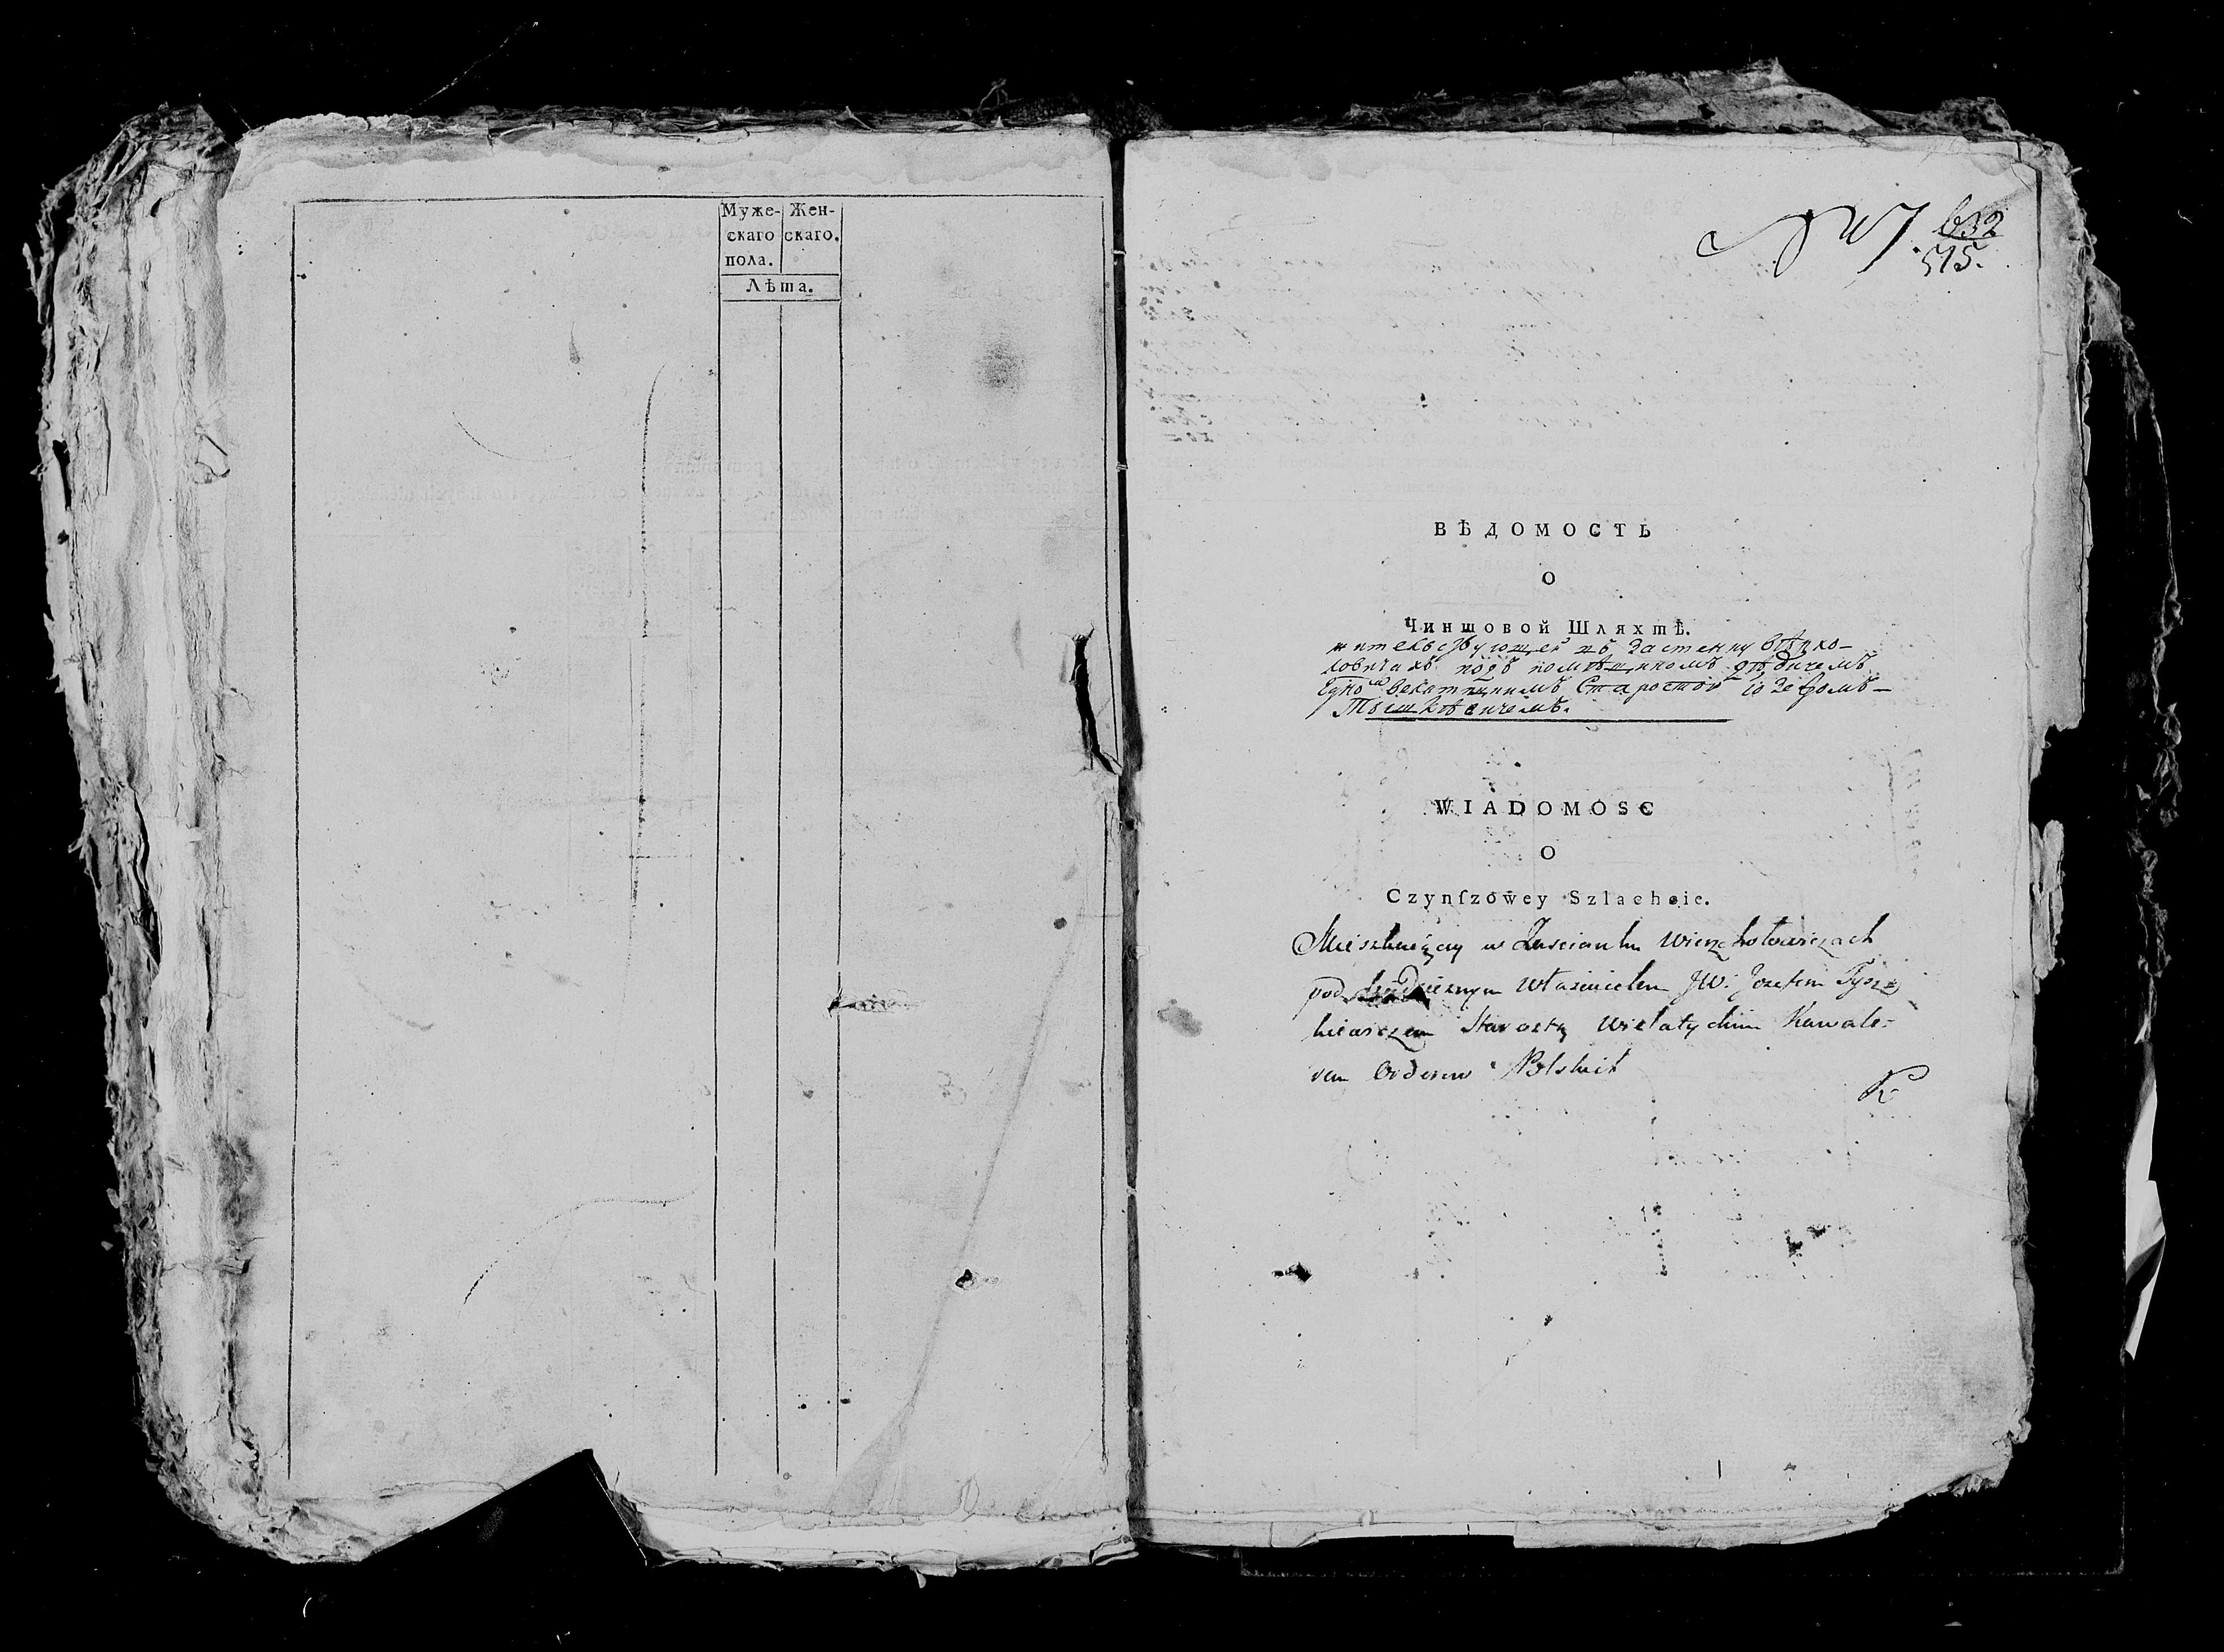 Муже- Жен-
скаго скаго.
пола.
Лѣта.
632
515.
ВѢДОМОСТЬ
О
Чиншовой Шляхтѣ.
жителствующей въ Застенку Вѣрхо-
ловичахъ подъ помѣщикомъ дѣдичемъ
Старостою Юзефомъ
Тышкѣвичемъ.
WIADOMOSC
O
Czynſzowey Szlachcie.
Mieszkaiącey w Zascianku Wierzchołowiczach
pod dziedzicznym Właścicielem JW. Jozefem Tysz=
kiewiczem Starostą Wielatyckim Kawale=
rem Orderow Polskich